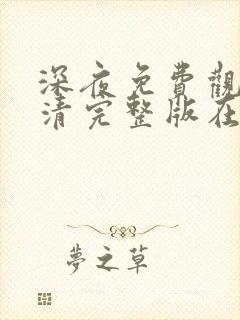 深夜免費觀
清完整版在
夢之草